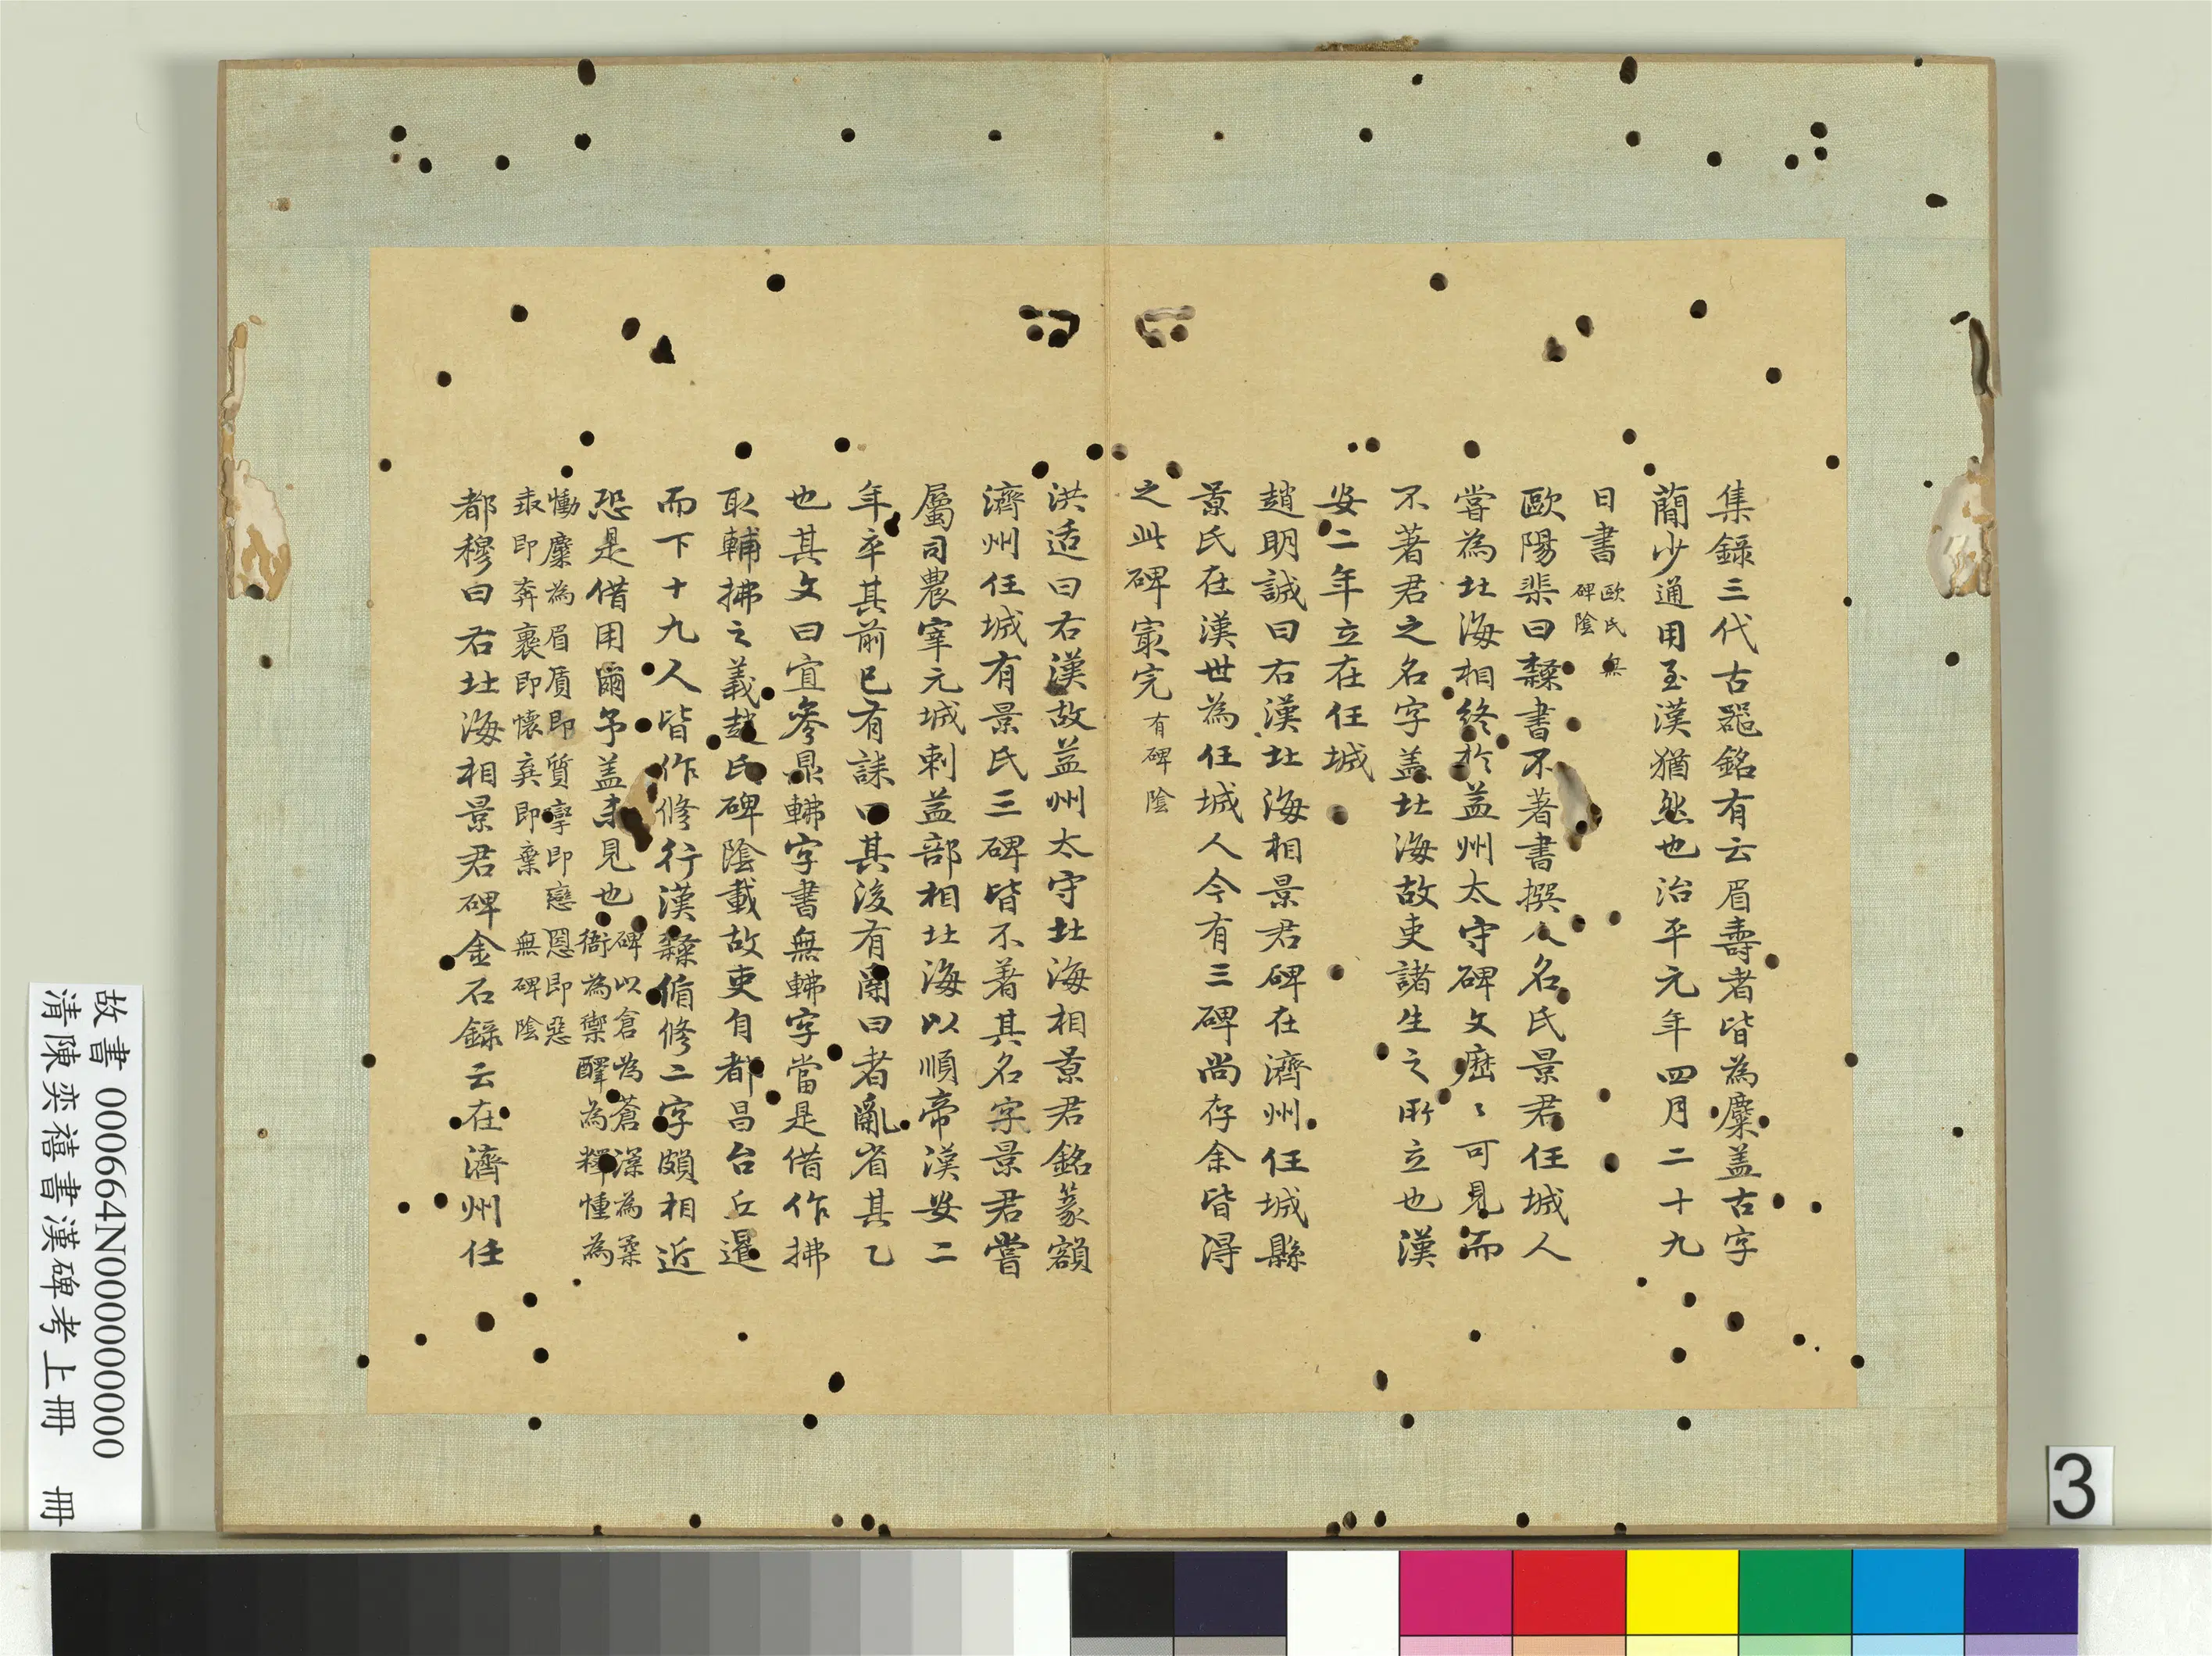 集錄三代古器銘有云眉壽者皆為麋盖古字
簡少通用至漢猶然也治平元年四月二十九
日書 歐氏無
碑陰
歐陽棐曰隸書不著書撰人名氏景君任城人
嘗為北海相終於益州太守碑文歷〻可見而
不著君之名字盖北海故吏諸生之所立也漢
安二年立在任城
趙明誠曰右漢北海相景君碑在濟州任城縣
景氏在漢世為任城人今有三碑尚存余皆得
之此碑最完 有碑陰
洪适曰右漢故益州太守北海相景君銘篆額
濟州任城有景氏三碑皆不著其名字景君嘗
屬司農宰元城刺益部相北海以順帝漢安二
年卒其前已有誄曰其後有𤔔曰者亂省其乙
也其文曰宜參鼎𨋥字書無𨋥字當是借作拂
取輔拂之義趙氏碑陰載故吏自都昌台丘暹
而下十九人皆作脩行漢隸循脩二字頗相近
恐是借用爾予盖未見也 碑以倉為蒼渘為柔
衙為禦醳為釋慬為
慟麋為眉貭即質孿即戀㤙即惡
𠦪即奔褱即懷弃即棄 無碑陰
都穆曰右北海相景君碑金石錄云在濟州任
故書 000664N000000000
清陳奕禧書漢碑考上冊 冊
3